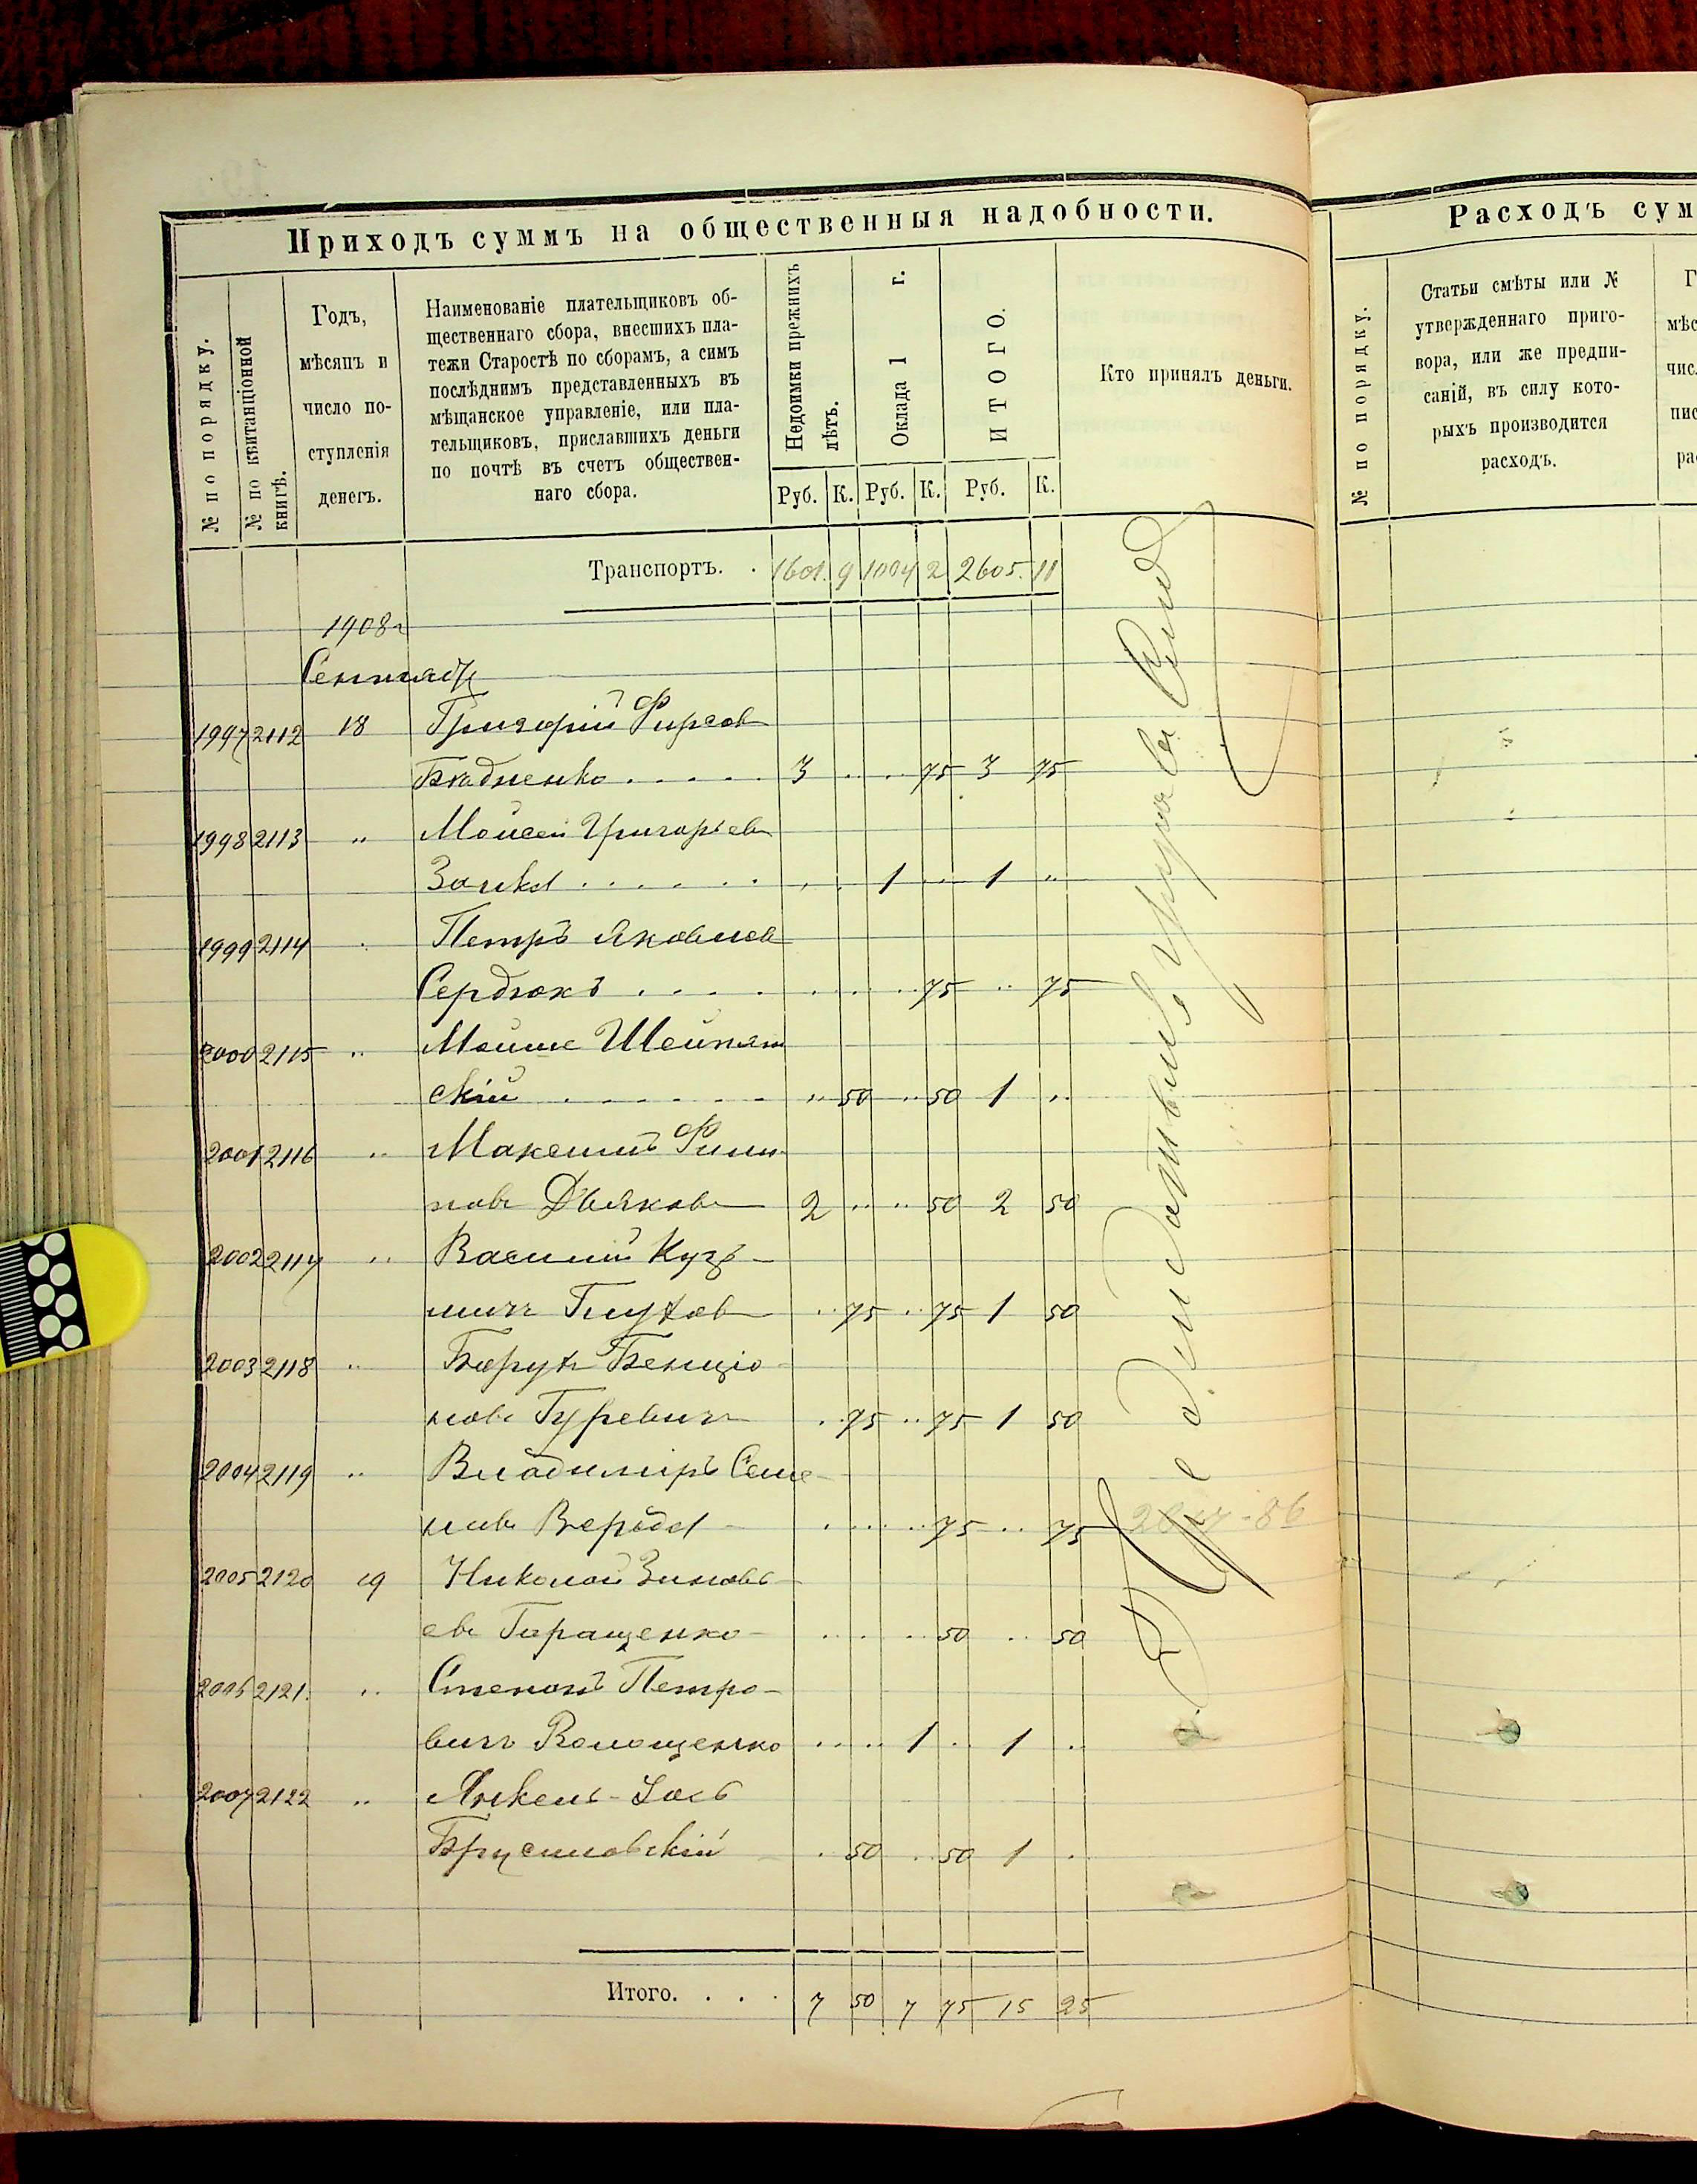 Приходъ суммъ на общественныя надобности.
№ по порядку.
№ по квитанціонной книгѣ.
Годъ,
мѣсяцъ и
число по-
ступленія
денегъ.
Наименованіе плательщиковъ об-
щественнаго сбора, внесшихъ пла-
тежи Старостѣ по сборамъ, а симъ
послѣднимъ представленныхъ въ
мѣщанское управленіе, или пла-
тельщиковъ, приславшихъ деньги
по почтѣ въ счетъ обществен-
наго сбора.
Недоимки прежнихъ
лѣтъ.
Оклада 1 г.
ИТОГО.
Руб. К. Руб. К. Руб. К.
Кто принялъ деньги.
Транспортъ. . 1601. 9 1004 2 2605. 11
1908 г
1997 2112 18 Григорій Фирсов
3 . . . 75 3 75
1998 2113 " Моисей Григорьев
Заика . . . . . . . . 1 . . 1 "
1999 2114 . Петръ Яковлев
Сердюкъ . . . . . . . . 75 . . 75
2000 2115 "
скій . . . . . . . " 50 " 50 1 "
2001 2116 " Максимъ Филип
пов Дьяков 2 . . . . 50 2 50
2002 2117 " Василий Кузь-
мич Глухов . . 75 . . 75 1 50
2003 2118 " Борух Бенціо-
нов Гуревич . 75 . . 75 1 50
2004 2119 " Владиміръ Семе-
нов . . . . . 75 . . 75
2005 2120 19 Николай Зиновь-
ев Геращенко - . . . . 50 . . 50
2006 2121. " Степанъ Петро-
вич Волощенко . . . . 1 . 1 .
2007 2122 " Янкель-
Брусиловскій . 50 . 50 1 .
Итого. . . . 7 50 7 75 15 25
Расходъ сум
№ по порядку.
Статьи смѣты или №
утвержденнаго приго-
вора, или же предпи-
саній, въ силу кото-
рыхъ производится
расходъ.
Г
мѣс
чис
пис
ра